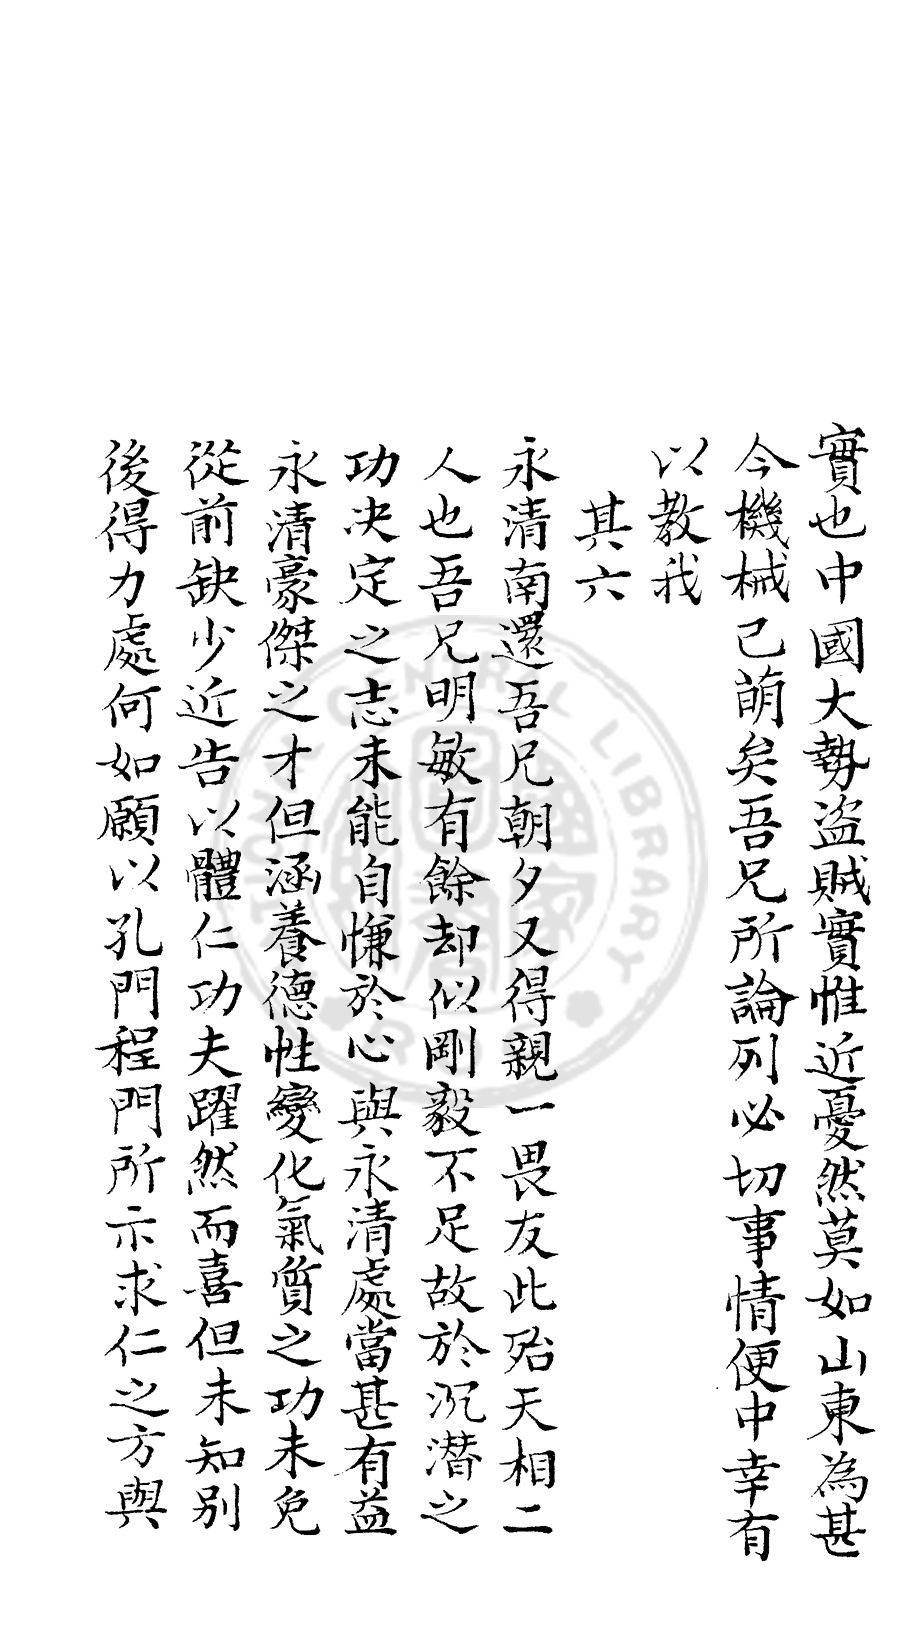 實也中國大勢盜賊實惟近憂然莫如山東為甚
今機械已萌矣吾兄所論列必切事情便中幸有
以教我
其六
永清南還吾兄朝夕又得親一畏友此殆天相二
人也吾兄明敏有餘却似剛毅不足故於沉潜之
功决定之志未能自慊於心與永清處當甚有益
永清豪傑之才但涵養德性變化氣質之功未免
從前缺少近告以體仁功夫躍然而喜但未知别
後得力處何如願以孔門程門所示求仁之方與
CENTRAL LIBRARY